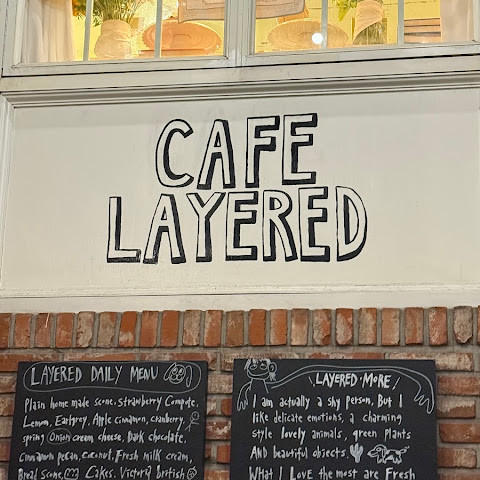 CAFE
LAYERED
LAYERED DAILY MENU
Plain home made scone, strawberry Compote,
Lemon, Earlgrey, Apple cinnamon, cranberry,
spring Onion cream cheese, Dark chocolate,
Cinnamon pecan, coconut, Fresh milk cream,
Bread Scone, Cakes. Victoria British
LAYERED MORE!
I am actually a shy person, But I
like delicate emotions, a charming
style lovely animals, green plants
AND beautiful objects.
What I Love the most are Fresh